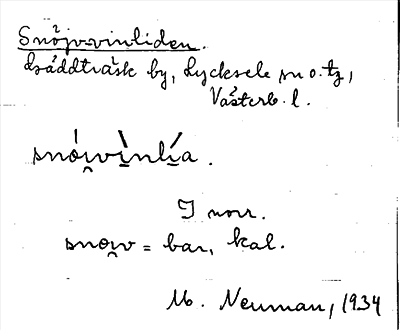 Snöjvvinliden.
Lsåddträsk by, Lycksele sn o. tg,
Västerb. l.
snówìnlía.
I norr.
snow = bar, kal.
M. Neuman, 1934